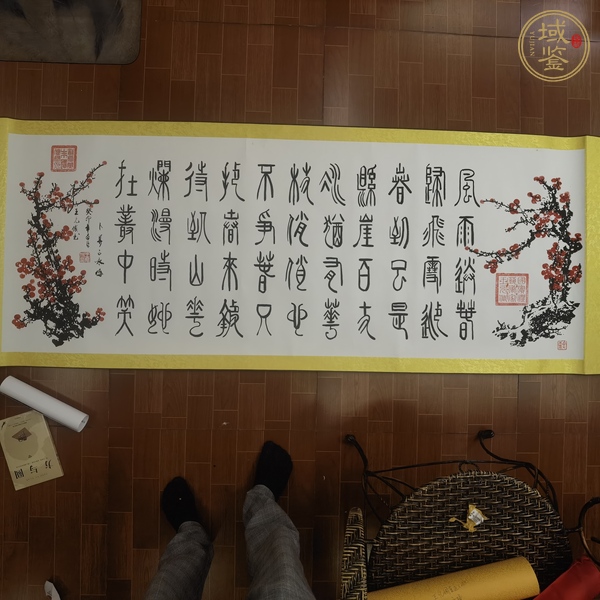 風雨送春
歸飛雪迎
春到已是
懸崖百丈
冰猶有華
枝俏俏也
不爭春只
把春來報
待到山花
爛漫時她
在叢中笑
卜算子咏梅
方与圆
域鉴
YUJIAN